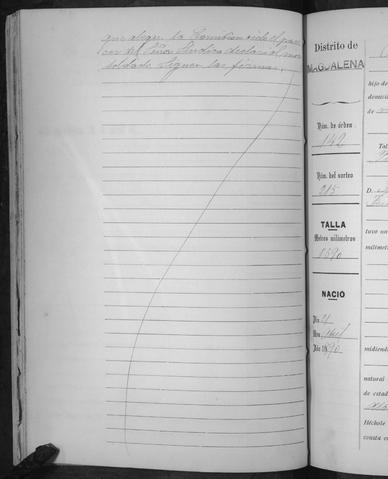 que alega. La Comisión oido el pare-
cer del Señor Síndico declaró al mozo
soldado. Siguen las firmas.
Distrito de
MAGDALENA
Núm. de órden
142
Núm. del sorteo
215
TALLA
Metros milímetros
1590
NACIÓ
Día 21
Mes
Año 1890
hijo de
domicilia
de
Tal
D.
tuvo un
milímet
midiend
natural
de estad
Héchole
consta e